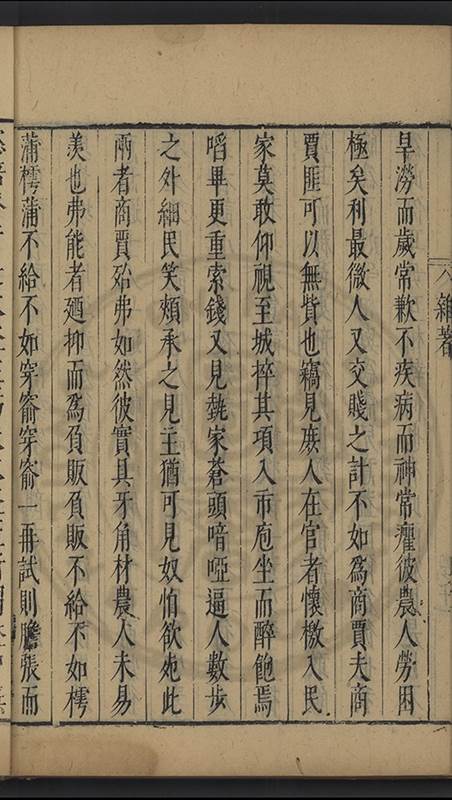 雜著
旱澇而歲常歉不疾病而神常癯彼農人勞困
極矣利最微人又交賤之計不如爲商賈夫商
賈匪可以無貲也竊見庶人在官者懷檄入民
家莫敢仰視至城捽其項入市庖坐而醉飽焉
啗畢更重索錢又見埶家蒼頭喑啞逼人數步
之外細民笑頰承之見主猶可見奴怕欲死此
兩者商賈殆弗如然彼實具牙角材農人未易
羨也弗能者廼抑而爲負販負販不給不如樗
蒲樗蒲不給不如穿窬穿窬一再試則膽張而